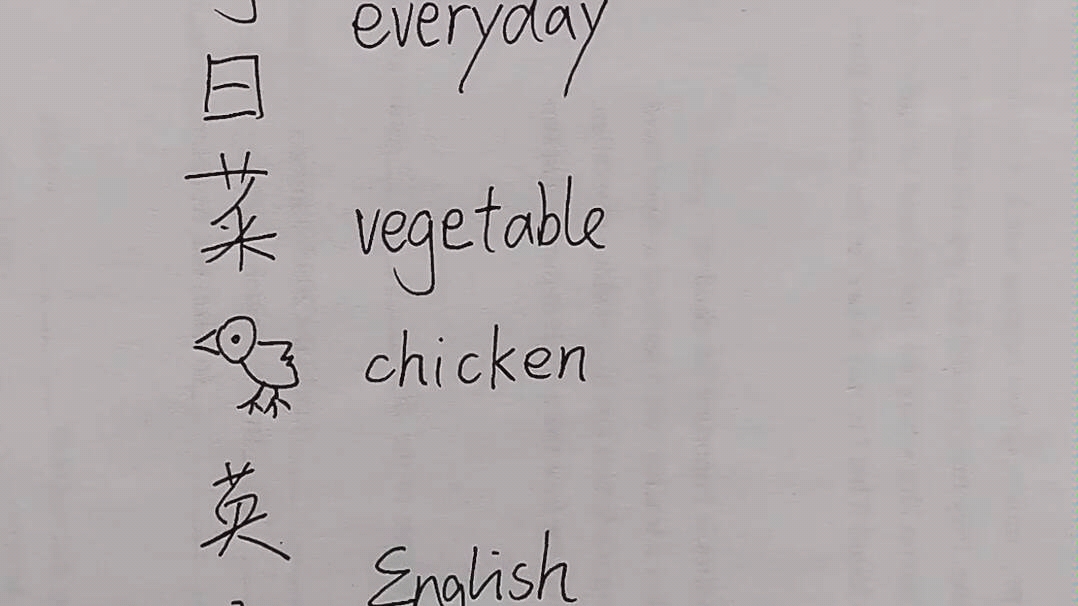 everyday
日
菜 vegetable
chicken
英
English